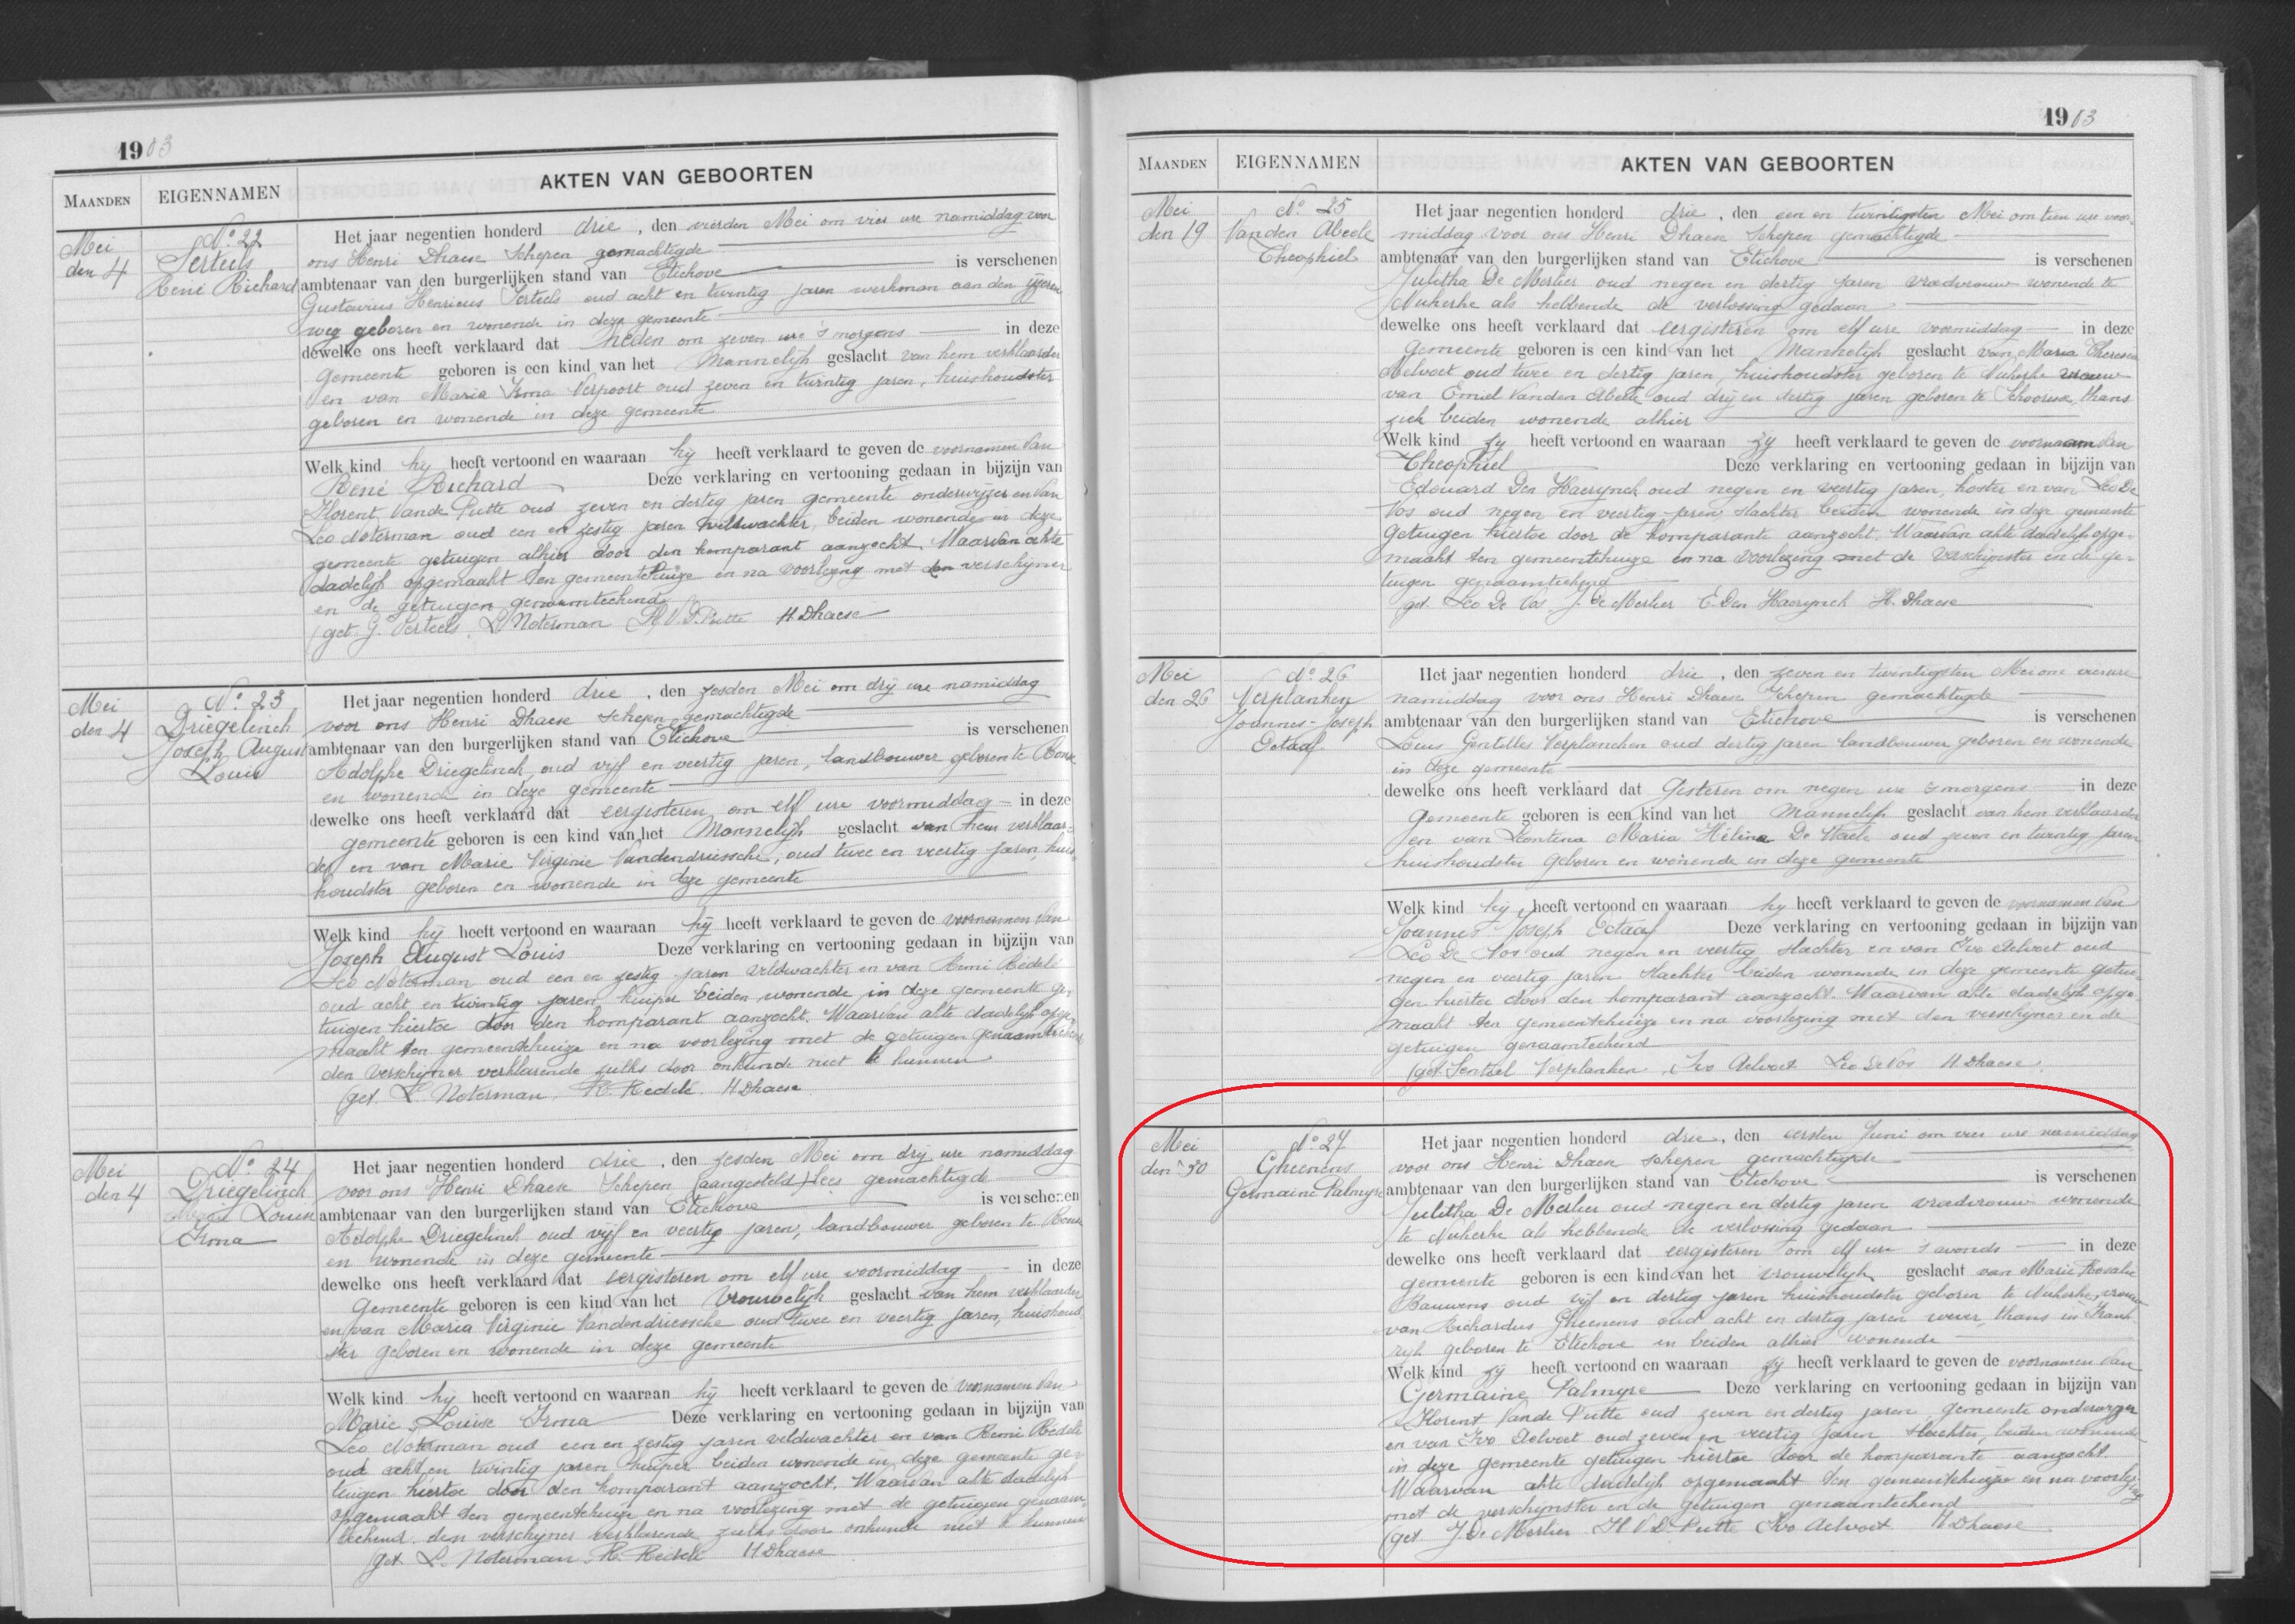 1903
MAANDEN
EIGENNAMEN
AKTEN VAN GEBOORTEN
Mei
den 4
No. 22
Serteels
René Richard
Het jaar negentien honderd drie, den vierden Mei om vier ure namiddag voor
ons Henri Dhaese Schepen gemachtigde
ambtenaar van den burgerlijken stand van Etichove is verschenen
Gustavius Henricus Serteels oud acht en twintig jaren werkman aan den ijzeren
weg geboren en wonende in deze gemeente
dewelke ons heeft verklaard dat heden om zeven ure 's morgens in deze
gemeente geboren is een kind van het Mannelijk geslacht van hem verklaarder
en van Maria Irma Verpoort oud zeven en twintig jaren, huishoudster
geboren en wonende in deze gemeente
Welk kind hij heeft vertoond en waaraan hij heeft verklaard te geven de voornamen van
René Richard Deze verklaring en vertooning gedaan in bijzijn van
Florent Vande Putte oud zeven en dertig jaren gemeente onderwijzer en van
Leo Noterman oud een en zestig jaren veldwachter, beiden wonende in deze
gemeente getuigen alhier door den komparant aanzocht. Waarvan akte
dadelijk opgemaakt ten gemeentehuize en na voorlezing met den verschijner
en de getuigen genaamteekend
(get. G. Serteels L. Noterman Fl. V. D. Putte H Dhaese
Mei
den 4
No. 23
Driegelinck
Joseph August
Louis
Het jaar negentien honderd drie, den zesden Mei om drij ure namiddag
voor ons Henri Dhaese schepen gemachtigde
ambtenaar van den burgerlijken stand van Etichove is verschenen
Adolphe Driegelinck, oud vijf en veertig jaren, landbouwer geboren te Ronse
en wonende in deze gemeente
dewelke ons heeft verklaard dat eergisteren om elf ure voormiddag in deze
gemeente geboren is een kind van het Mannelijk geslacht van hem verklaar-
der en van Marie Virginie Vandendriessche, oud twee en veertig jaren, huis-
houdster geboren en wonende in deze gemeente
Welk kind hij heeft vertoond en waaraan hij heeft verklaard te geven de voornamen van
Joseph August Louis Deze verklaring en vertooning gedaan in bijzijn van
Leo Noterman oud een en zestig jaren veldwachter en van Remi Redelé
oud acht en twintig jaren kuiper beiden wonende in deze gemeente ge-
tuigen hiertoe door den komparant aanzocht. Waarvan akte dadelijk opge-
maakt ten gemeentehuize en na voorlezing met de getuigen genaamteekend
den verschijner verklarende zulks door onkunde niet te kunnen
(get. L. Noterman. R. Redelé. H Dhaese
Mei
den 4
No. 24
Driegelinck
Louise
Irma
Het jaar negentien honderd drie, den zesden Mei om drij ure namiddag
voor ons Henri Dhaese Schepen (aangesteld) lees gemachtigde
ambtenaar van den burgerlijken stand van Etichove is verschenen
Adolphe Driegelinck oud vijf en veertig jaren, landbouwer geboren te Ronse
en wonende in deze gemeente
dewelke ons heeft verklaard dat eergisteren om elf ure voormiddag in deze
gemeente geboren is een kind van het Vrouwelijk geslacht van hem verklaarder
en van Maria Virginie Vandendriessche oud twee en veertig jaren, huishoud-
ster geboren en wonende in deze gemeente
Welk kind hij heeft vertoond en waaraan hij heeft verklaard te geven de voornamen van
Marie Louise Irma Deze verklaring en vertooning gedaan in bijzijn van
Leo Noterman oud een en zestig jaren veldwachter en van Remi Redelé
oud acht en twintig jaren kuiper beiden wonende in deze gemeente ge-
tuigen hiertoe door den komparant aanzocht. Waarvan akte dadelijk
opgemaakt ten gemeentehuize en na voorlezing met de getuigen genaam-
teekend den verschijner verklarende zulks door onkunde niet te kunnen
(get L. Noterman. R. Redelé H Dhaese
1903
MAANDEN
EIGENNAMEN
AKTEN VAN GEBOORTEN
Mei
den 19
No. 25
Vanden Abeele
Theophiel
Het jaar negentien honderd drie, den een en twintigsten Mei om tien ure voor-
middag voor ons Henri Dhaese Schepen gemachtigde
ambtenaar van den burgerlijken stand van Etichove is verschenen
Julitha De Merlier oud negen en dertig jaren vroedvrouw wonende te
Nukerke als hebbende de verlossing gedaan
dewelke ons heeft verklaard dat eergisteren om elf ure voormiddag in deze
gemeente geboren is een kind van het Mannelijk geslacht van Maria Theresia
Aelvoet oud twee en dertig jaren, huishoudster geboren te Nukerke vrouw
van Emiel Vanden Abeele oud drij en dertig jaren geboren te Schoorisse, thans
zich beiden wonende alhier
Welk kind zy heeft vertoond en waaraan zy heeft verklaard te geven de voornaam van
Theophiel Deze verklaring en vertooning gedaan in bijzijn van
Edouard Den Haerynck oud negen en veertig jaren, koster en van Leo De
Vos oud negen en veertig jaren, slachter beiden wonende in deze gemeente
getuigen hiertoe door de komparante aanzocht. Waarvan akte dadelijk opge-
maakt ten gemeentehuize en na voorlezing met de verschijnster en de ge-
tuigen genaamteekend
(get. Leo De Vos J. De Merlier E. Den Haerynck H. Dhaese
Mei
den 26
No. 26
Verplanken
Joannes-Joseph
Octaaf
Het jaar negentien honderd drie, den zeven en twintigsten Mei om vier ure
namiddag voor ons Henri Dhaese Schepen gemachtigde
ambtenaar van den burgerlijken stand van Etichove is verschenen
Louis Gentilles Verplancken oud dertig jaren landbouwer geboren en wonende
in deze gemeente
dewelke ons heeft verklaard dat Gisteren om negen ure s'morgens in deze
gemeente geboren is een kind van het Mannelijk geslacht van hem verklaarder
en van Leontina Maria Hélina De Waele oud zeven en twintig jaren
huishoudster geboren en wonende in deze gemeente
Welk kind hij heeft vertoond en waaraan hy heeft verklaard te geven de voornamen van
Joannes Joseph Octaaf Deze verklaring en vertooning gedaan in bijzijn van
Leo De Vos oud negen en veertig slachter en van Ivo Aelvoet oud
negen en veertig jaren slachter beiden wonende in deze gemeente getui-
gen hiertoe door den komparant aanzocht. Waarvan akte dadelijk opge-
maakt ten gemeentehuize en na voorlezing met den verschijner en de
getuigen genaamteekend
(get Verplanken, Ivo Aelvoet Leo De Vos H Dhaese.
Mei
den 30
No. 27
Gheenens
Germaine Palmyre
Het jaar negentien honderd drie, den eersten Juni om vier ure namiddag
voor ons Henri Dhaese schepen gemachtigde
ambtenaar van den burgerlijken stand van Etichove is verschenen
Julitha De Merlier oud negen en dertig jaren vroedvrouw wonende
te Nukerke als hebbende de verlossing gedaan
dewelke ons heeft verklaard dat eergisteren om elf ure 's avonds in deze
gemeente geboren is een kind van het vrouwelijk geslacht van Marie Rosalie
Bauwens oud vijf en dertig jaren huishoudster geboren te Nukerke, vrouw
van Richardus Gheenens oud acht en dertig jaren wever, thans in Frank
rijk geboren te Etichove en beiden alhier wonende
Welk kind zy heeft vertoond en waaraan zy heeft verklaard te geven de voornamen van
Germaine Palmyre Deze verklaring en vertooning gedaan in bijzijn van
Florent Vande Putte oud zeven en dertig jaren gemeente onderwyzer
en van Ivo Aelvoet oud zeven en veertig jaren slachter, beiden wonende
in deze gemeente getuigen hiertoe door de komparante aanzocht.
Waarvan akte dadelijk opgemaakt ten gemeentehuize en na voorlezing
met de verschijnster en de getuigen genaamteekend
(get J. De Merlier Fl V D. Putte Ivo Aelvoet H Dhaese